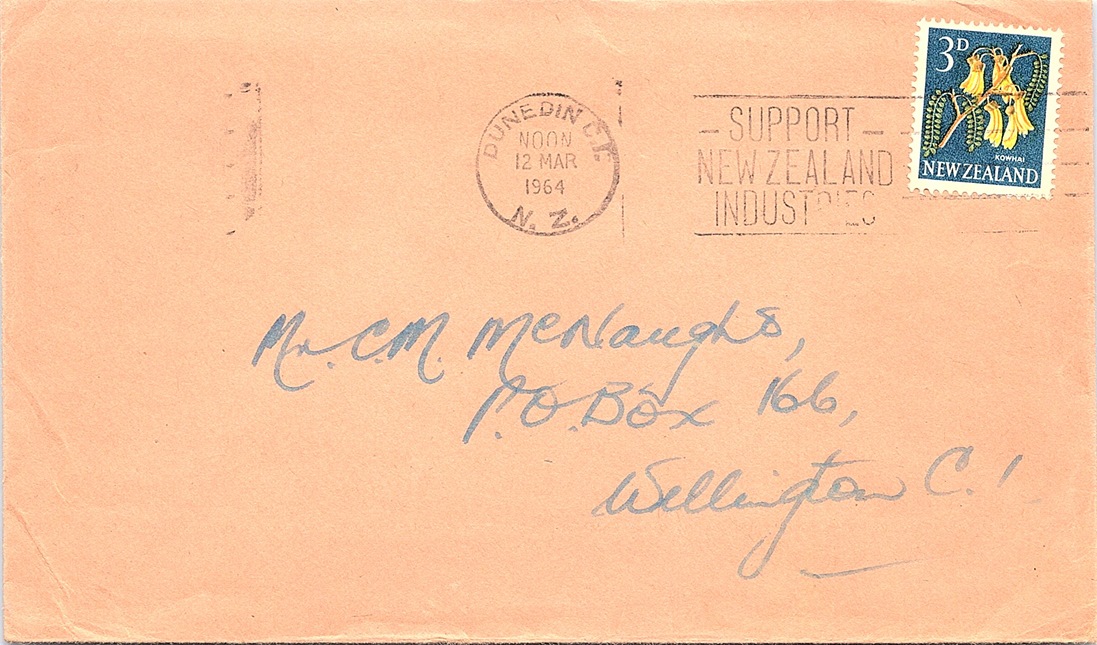 3D
KOWHAI
NEW ZEALAND
DUNEDIN C.1.
NOON
12 MAR
1964
N. Z.
– SUPPORT –
NEW ZEALAND
INDUSTRIES
Mr. C.M. McNaught,
P.O. Box 166,
Wellington C.1